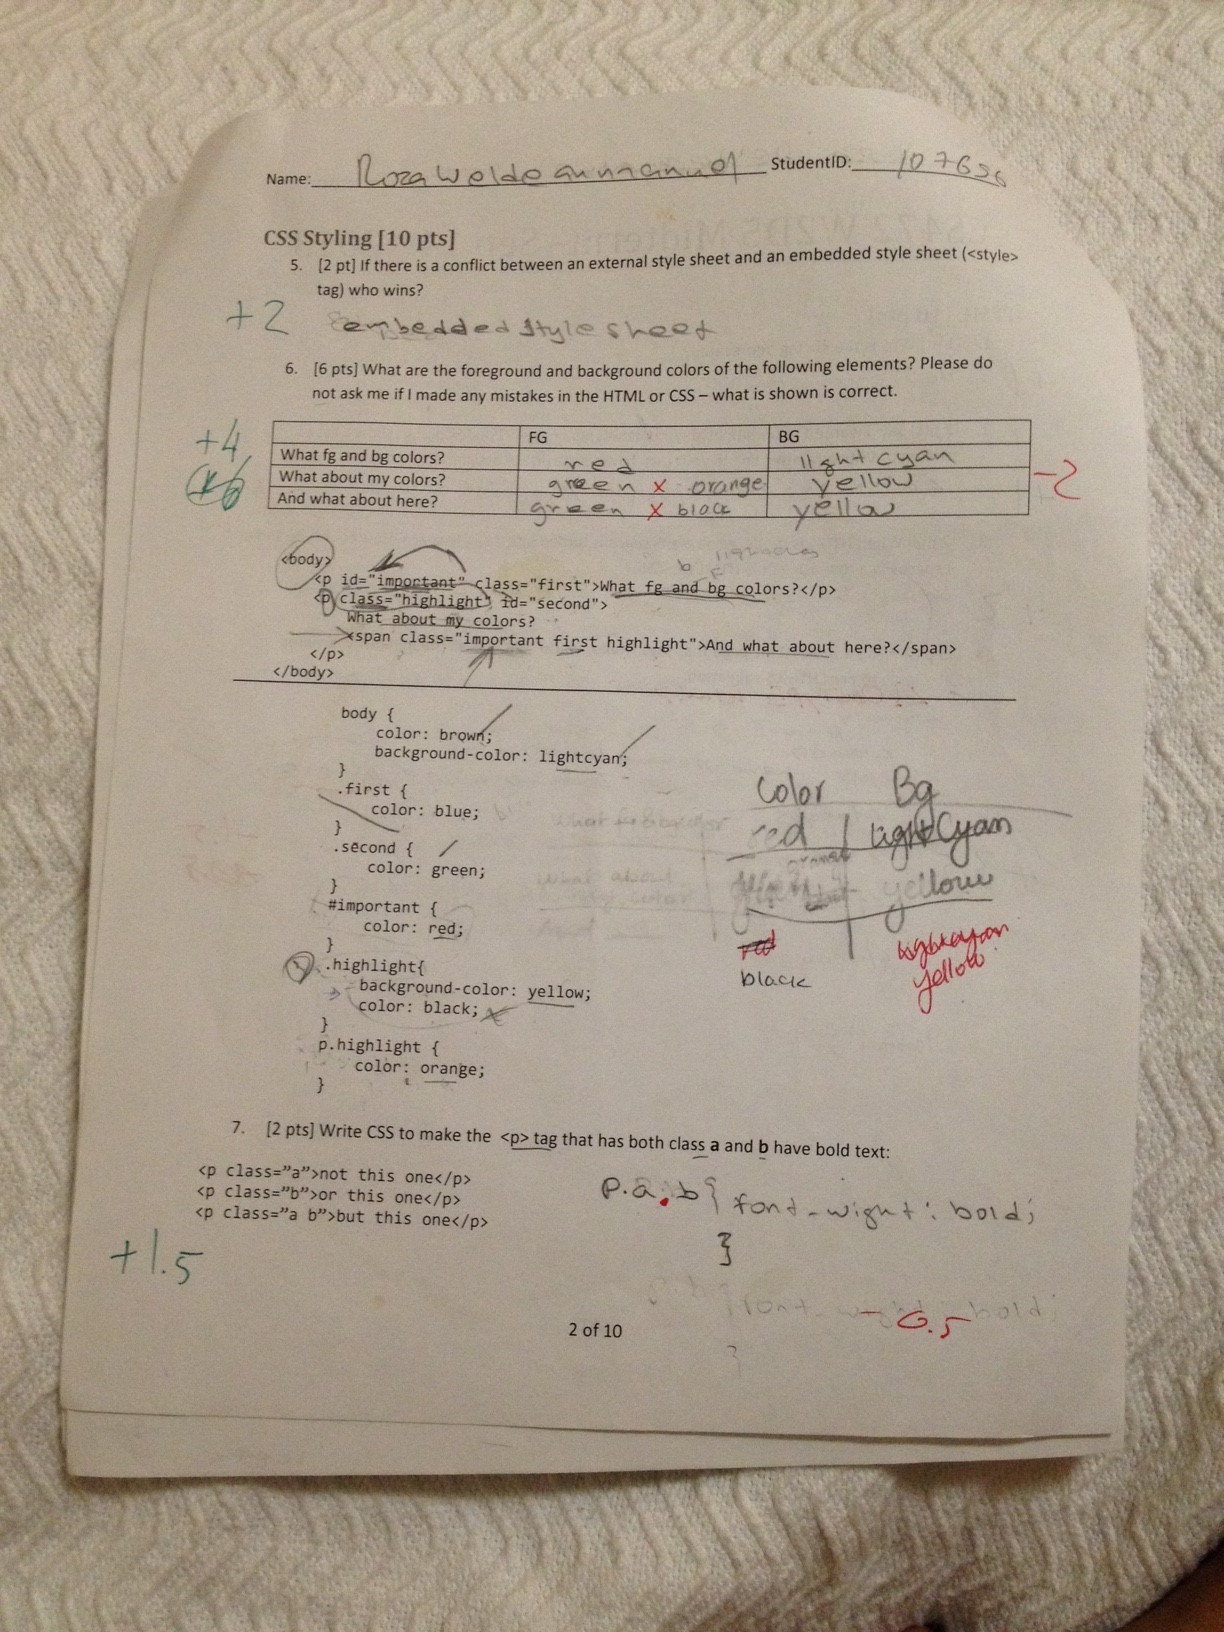 Name: Roza Weldeammanuel StudentID: 107636
CSS Styling [10 pts]
5. [2 pt] If there is a conflict between an external style sheet and an embedded style sheet (<style>
tag) who wins?
+2 embedded style sheet
6. [6 pts] What are the foreground and background colors of the following elements? Please do
not ask me if I made any mistakes in the HTML or CSS – what is shown is correct.
+4 FG BG
What fg and bg colors? red light cyan
What about my colors? green x orange yellow -2
And what about here? green x black yellow
<body>
<p id="important" class="first">What fg and bg colors?</p>
<p class="highlight" id="second">
What about my colors?
<span class="important first highlight">And what about here?</span>
</p>
</body>
body {
color: brown;
background-color: lightcyan;
}
.first {
color: blue;
}
.second {
color: green;
}
#important {
color: red;
}
.highlight{
background-color: yellow;
color: black;
}
p.highlight {
color: orange;
}
Color Bg
red lightCyan
yellow
red lightcyan
black yellow
7. [2 pts] Write CSS to make the <p> tag that has both class a and b have bold text:
<p class=”a”>not this one</p>
<p class=”b”>or this one</p>
<p class=”a b”>but this one</p>
p.a.b{ font-wight: bold;
}
+1.5
-0.5
2 of 10